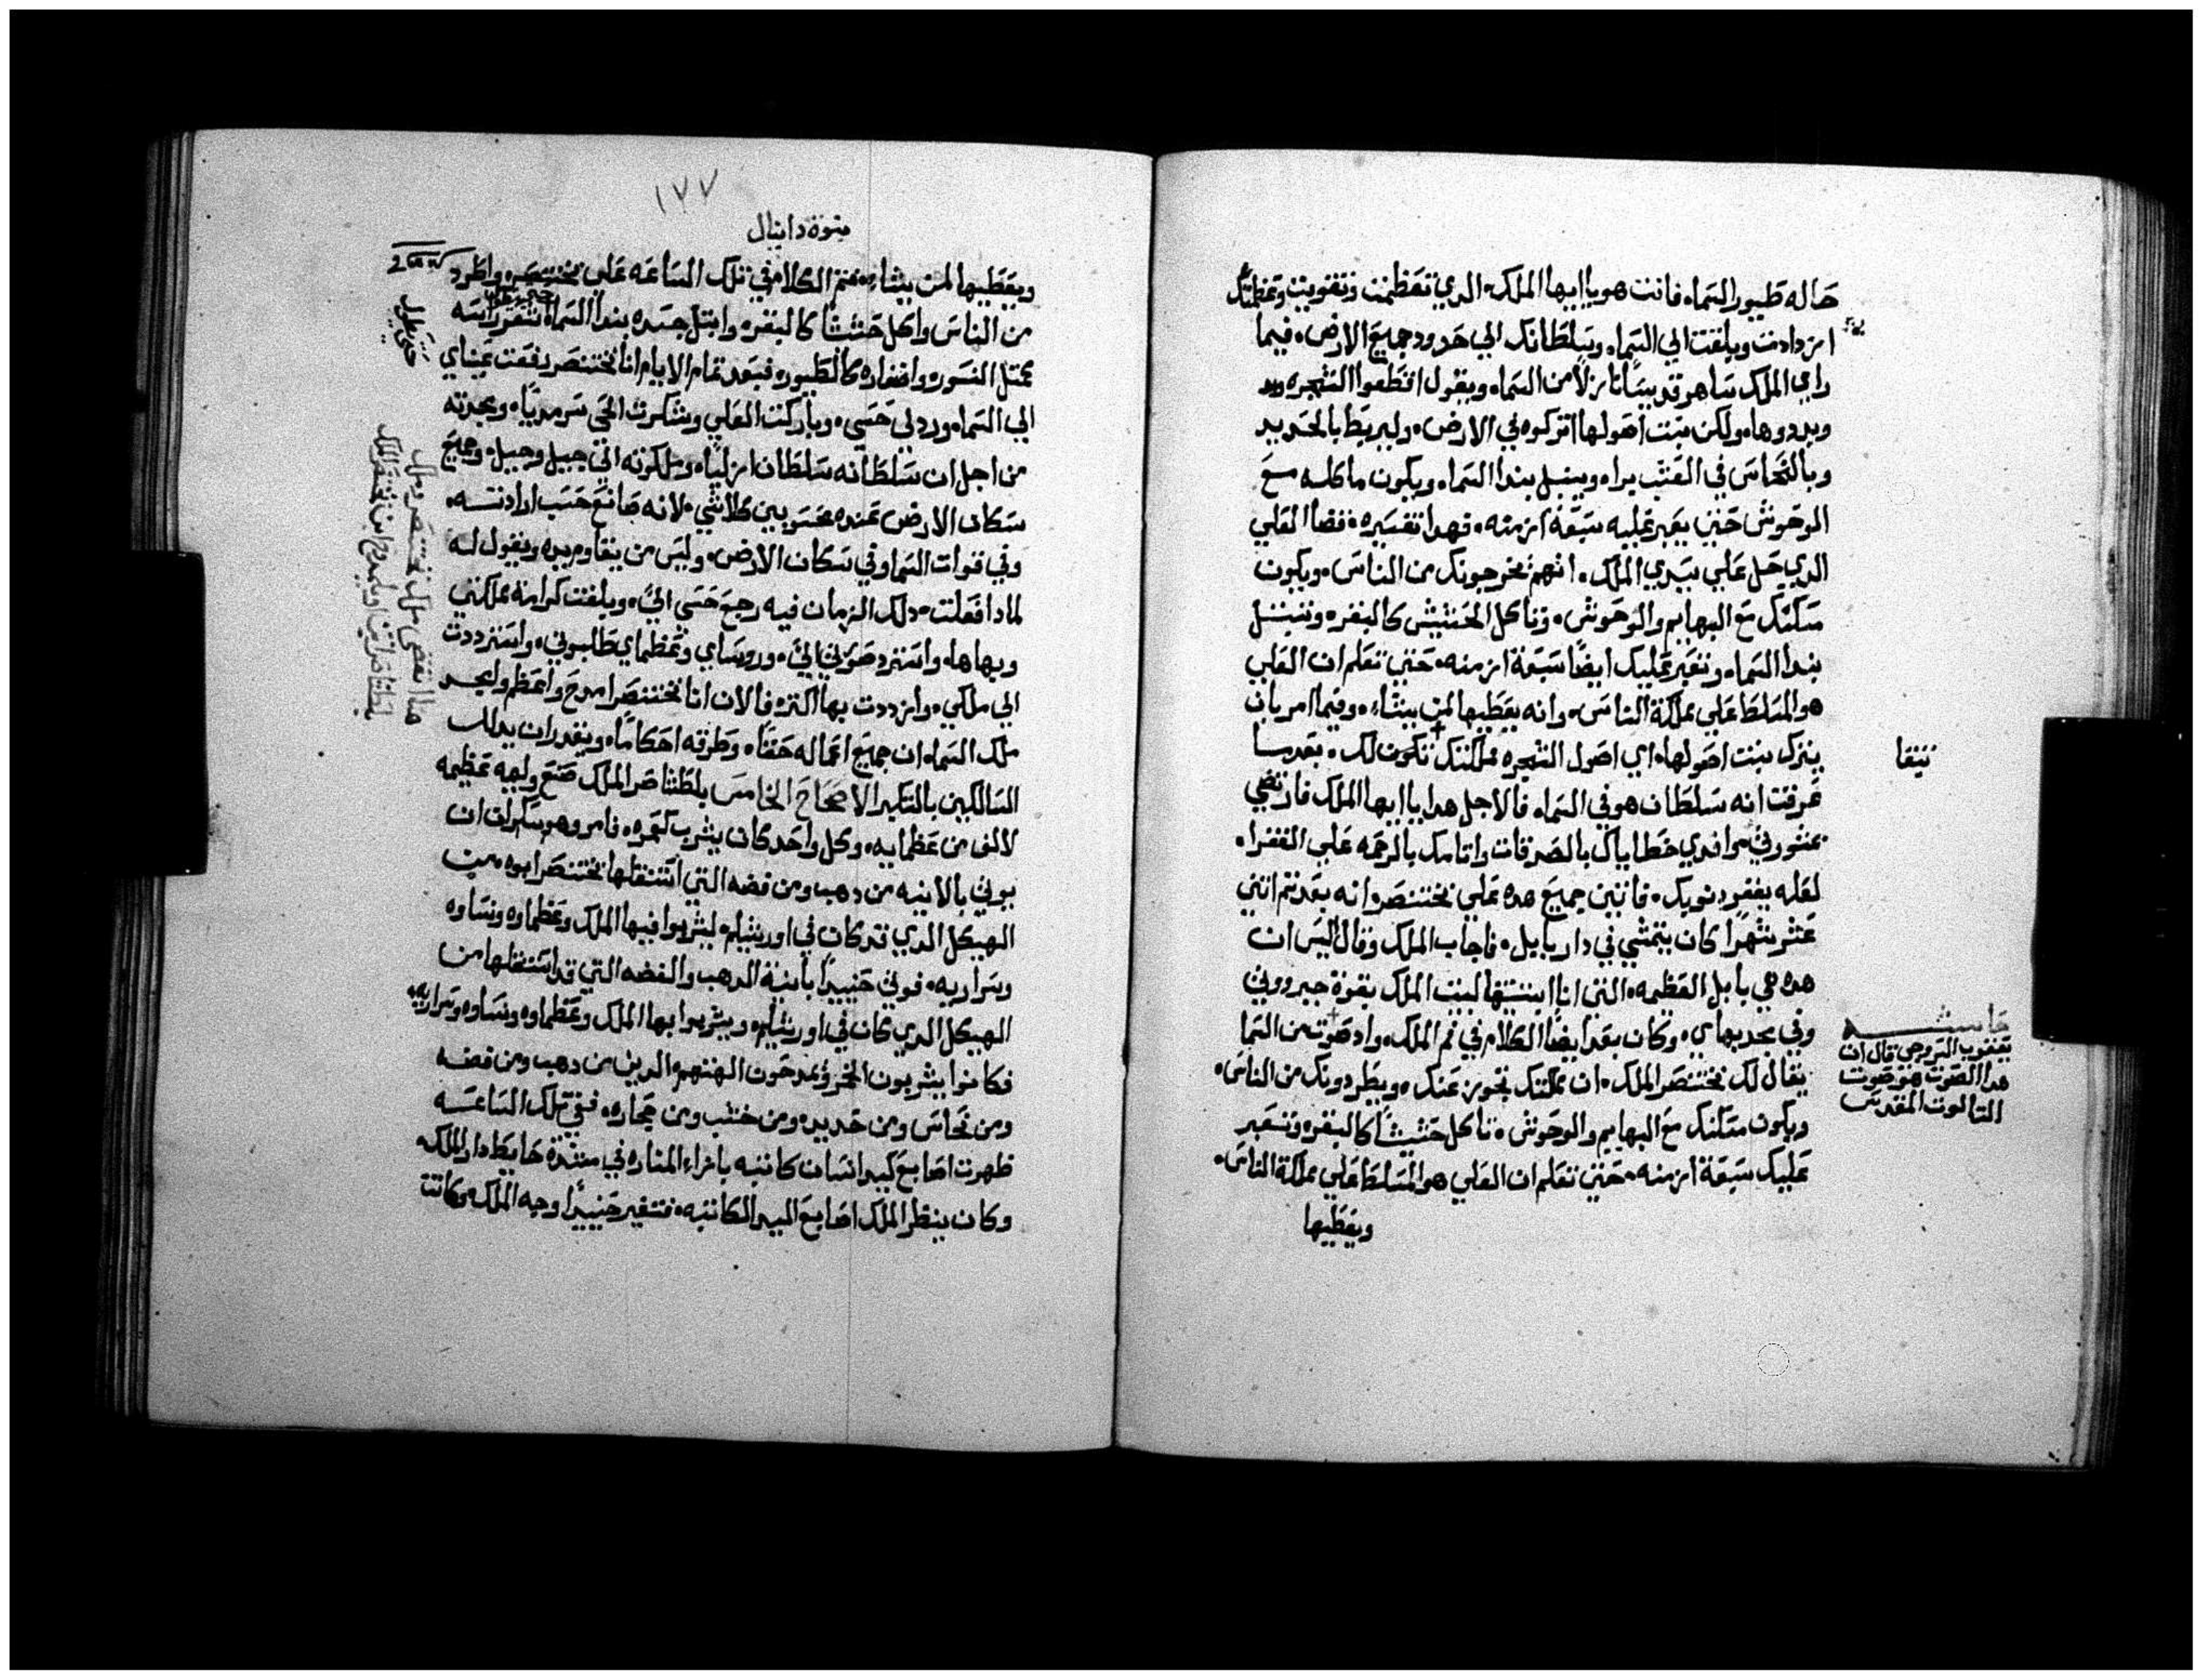 حاله طيور السماء فانت هو يا ايها الملك الدي تعظمت وتقويت وعظمتك
ازدادت وبلغت الي السماء وسلطانك الي حدود جميع الارض فيما
راي الملك ساهر قديسا نازلا من السماء ويقول اقطعوا الشجره
وبددوها ولكن نبت اصولها اتركوه في الارض وليربط بالحديد
وبالنحاس في العشب برا وينبل بندا السماء ويكون ماكله مع
الوحوش حتي يعبر عليه سبعة ازمنه فهدا تفسيره فضا العلي
الدي حل علي سيدي الملك انهم يخرجونك من الناس ويكون
مسكنك مع البهايم والوحوش وتاكل الحشيش كالبقره وتنبتل
بندا السماء وتعبر عليك ايضا سبعة ازمنه حتي تعلم ان العلي
هو المسلط علي مملكة الناس وانه يعطيها لمن يشاء وفيما امر بان
يترك نبت اصولها اي اصول الشجره مملكتك تكون لك بعدما
تبقا
عرفت انه سلطان هو في السماء فالاجل هدا يا ايها الملك فارتضي
بمشورتي وافدي خطاياك بالصدقات واتامك بالرحمه علي الفقراء
لعله يغفر دنوبك فاتين جميع هده علي بختنصر وانه بعد تم اتني
عشر شهرا كان يتمشي في دار بابل فاجاب الملك وقال اليس ان
هده هي بابل العظمه التي انا ابتنيتها لبيت الملك بقوة جبروتي
وفي مجد بهاي وكان بعد ايضا الكلام في فم الملك واد صوت من السما
حاشيه
يعقوب السروجي قال ان
هدا الصوت هو صوت
التالوت المقدس
يقال لك بختنصر الملك ان مملكتك تجوز عنك ويطردونك من الناس
ويكون مسكنك مع البهايم والوحوش تاكل حشيشا كالبقره وتعبر
عليك سبعة ازمنه حتي تعلم ان العلي هو المسلط علي مملكة الناس
ويعطيها
١٧٧
نبوة دانيال
ويعطيها لمن يشاء فتم الكلام في تلك الساعه علي بختنصر واطرد
من الناس واكل حشيشا كالبقره وابتل جسده بندا السماء شعر راسه
حتي يطول
بمتل النسور واضفاره كالطيور فبعد تمام الايام انا بختنصر رفعت عيناي
الي السماء ورد لي حسي وباركت العلي وشكرت الحي سرمديا ومجدته
من اجل ان سلطانه سلطان ازليا وملكوته الي جيل وجيل وجميع
سكان الارض عنده محسوبين كلاشي لانه صانع حسب ارادته
وفي قوات السما وفي سكان الارض وليس من يقاوم يده ويقول له
لمادا فعلت دلك الزمان فيه رجع حسي الي وبلغت كرامة مملكتي
وبهاها واسترد صورتي الي وروساي وعظماي طلبوني واسترددت
الي ملكي وازددت بها اكتر فالان انا بختنصر امدح واعظم وامجد
ملك السماء ان جميع اعماله حقا وطرقه احكاما ويقدر ان يدلل
السالكين بالتكبر الاصحاح الخامس بلطشاصر الملك صنع وليمه عظيمه
لالف من عظمايه وكل واحد كان يشرب كعمره فامر وهو سكران ان
يوتي بالانيه من دهب ومن فضه التي استنقلها بختنصر ابوه من
الهيكل الدي قد كان في اورشليم ليشربوا فيها الملك وعظماوه ونساوه
وسراريه فوتي حنييدا بانية الدهب والفضه التي قد استنقلها من
الهيكل الدي كان في اورشليم ويشربوا بها الملك وعظماوه ونساوه وسراريه
فكانوا يشربون الخمر ويمدحون الهتهم الدين من دهب ومن فضه
ومن نحاس ومن حديد ومن خشب ومن حجاره ففي تلك الساعه
ظهرت اصابع كيد انسان كاتبه بازاء المناره في مشيدة حايط دار الملك
وكان ينظر الملك اصابع اليد الكاتبه فتغير حنييدا وجه الملك وكانت
هدا انقضي ملك بختنصر وملك